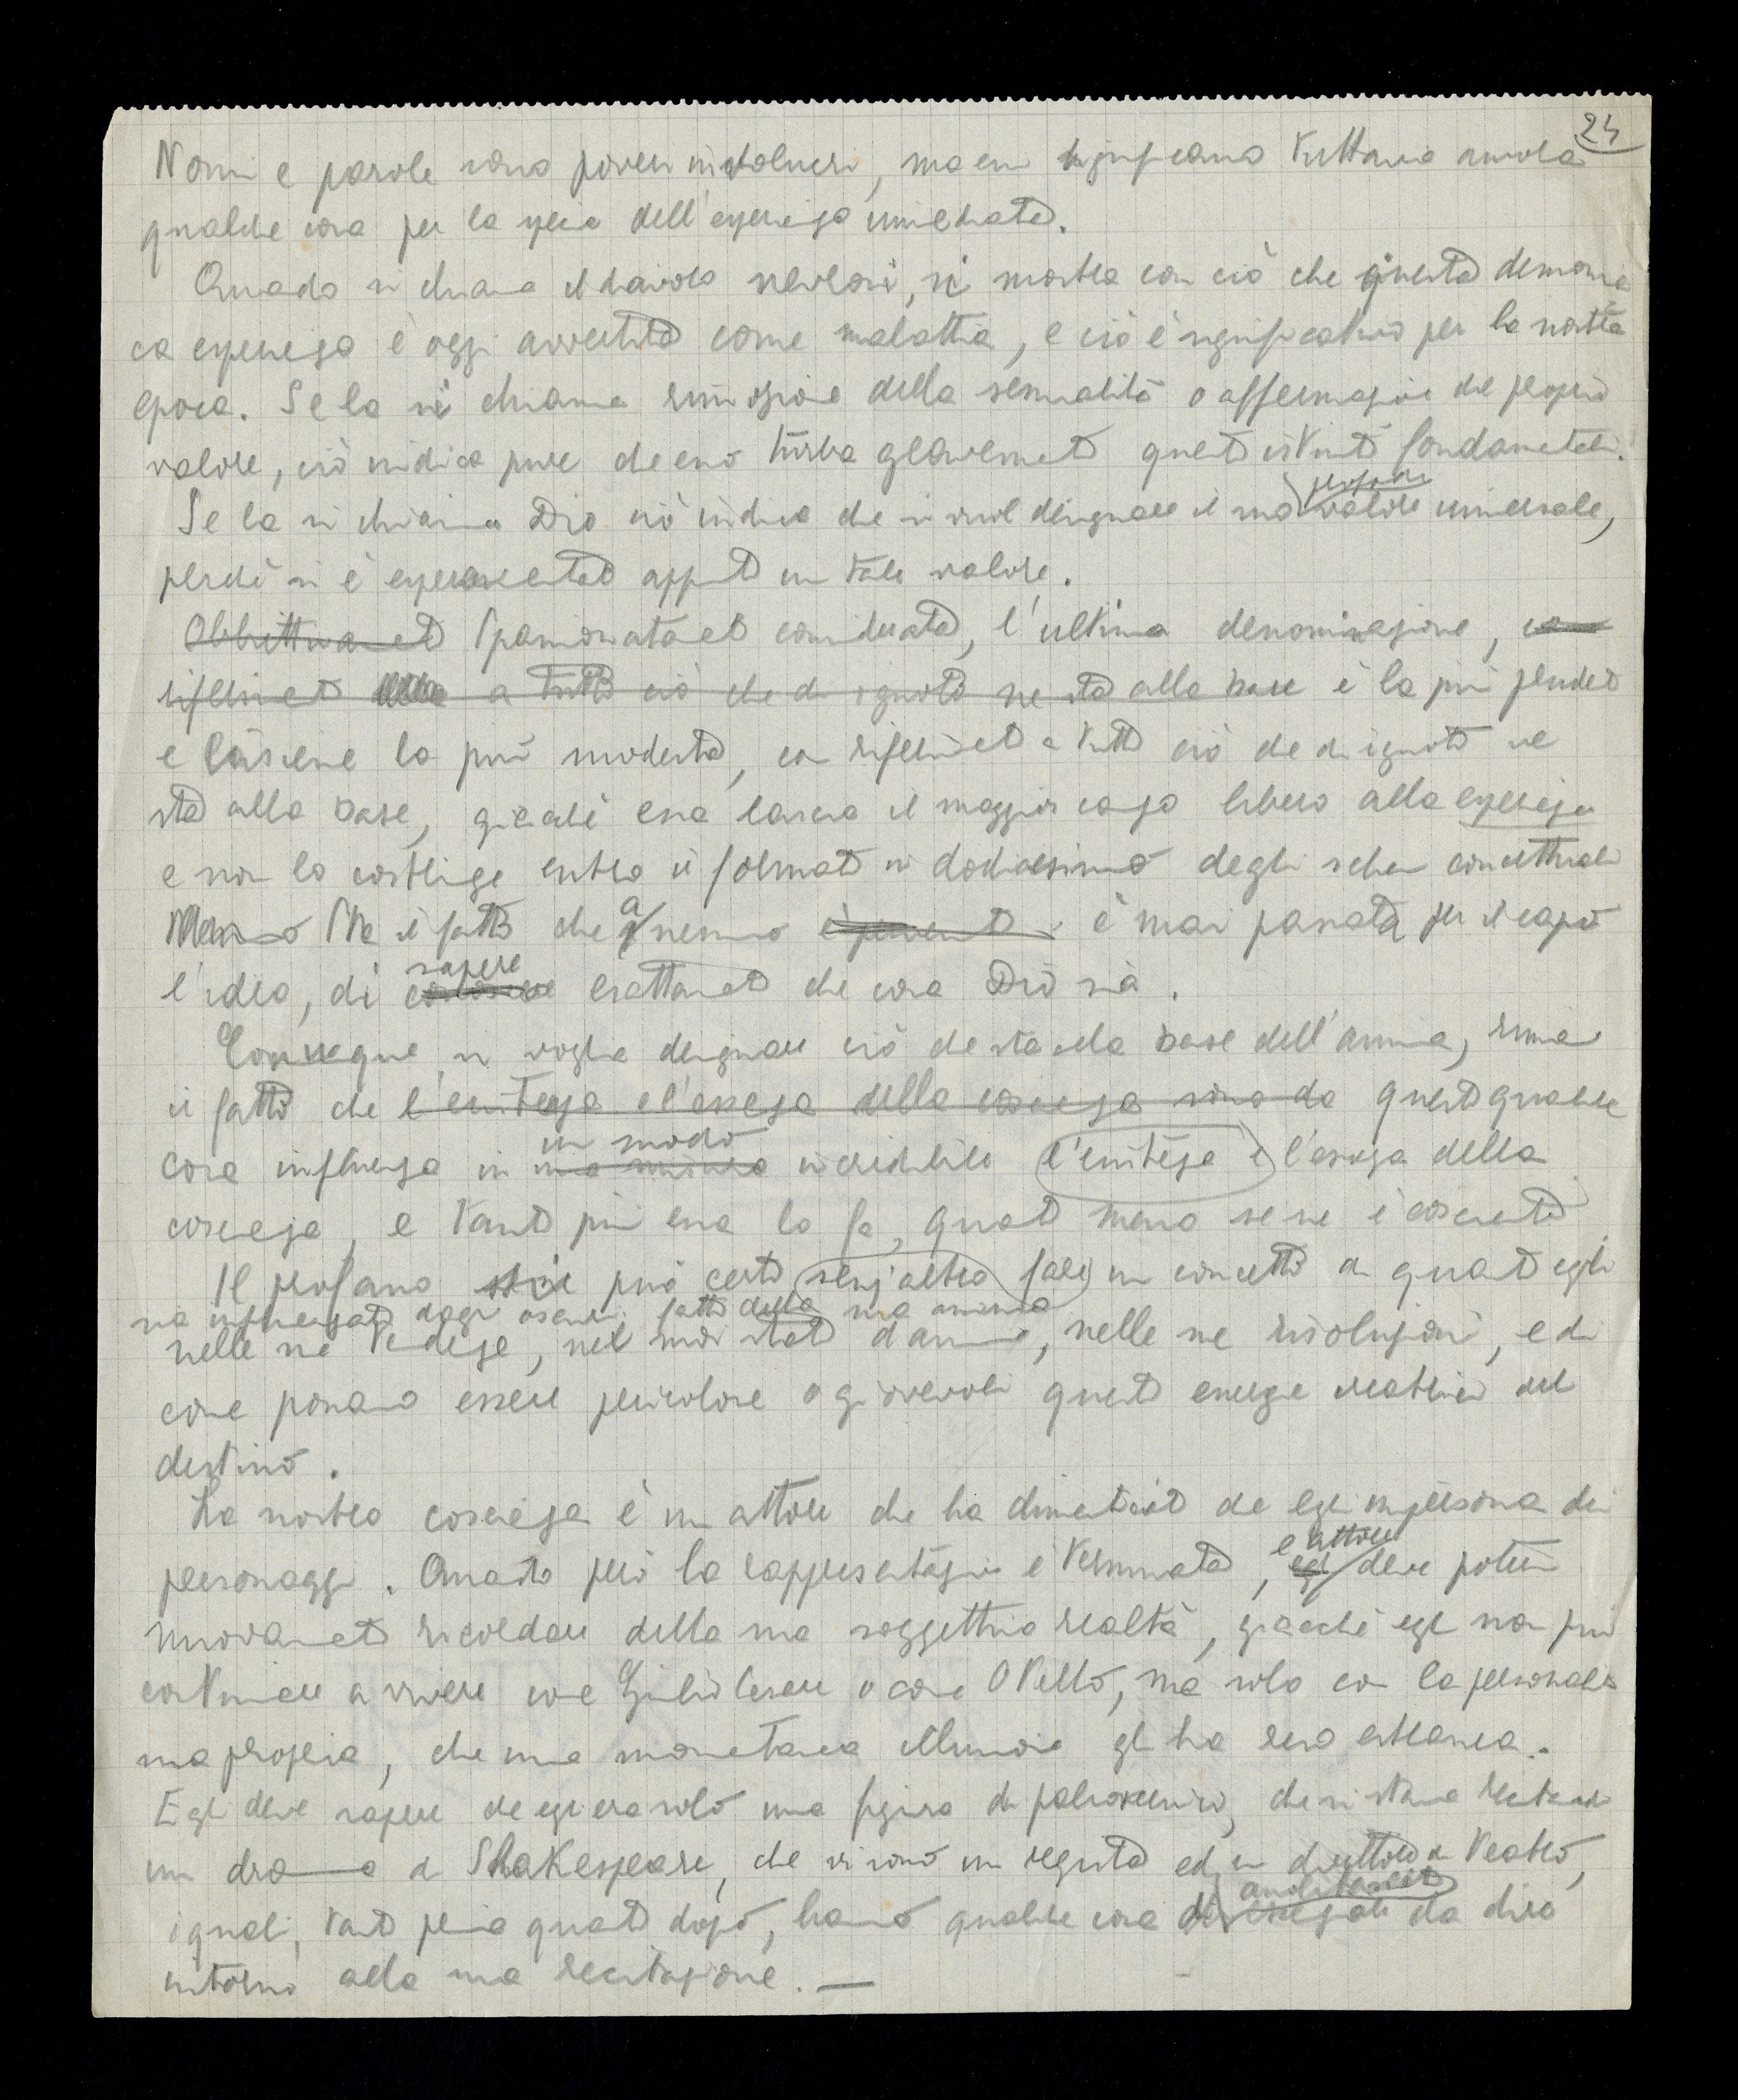 24
Nomi e parole sono poveri involucri, ma essi significano tuttavia ancora
qualche cosa per la specie dell'esperienza immediata.
Quando si chiama il diavolo nevrosi, si mostra con ciò che questa demonia
ca esperienza è oggi avvertita come malattia, e ciò è significativo per la nostra
epoca. Se la si chiama rimozione della sessualità o affermazione del proprio
valore, ciò indica pure che essa turba gravement questi istinti fondamentali.
Se la si chiama Dio ciò indica che si vuol designare il suo profondo valore universale,
perché si è esperimentato appunto un tale valore.
Obbiettivamente Spassionatamente considerata, l'ultima denominazione, con
riferimento a tutto ciò che di ignoto ne sta alla base è la più prudente
e insieme la più modesta, con riferimento a tutto ciò che di ignoto ne
sta alla base, giacché essa lascia il maggior campo libero alla esperienza
e non la costringe entro il formato in dodicesimo degli schemi concettuali
Ma il fatto che a nessuno è mai passata per il capo
l'idea, di sapere conoscere esattamente che cosa Dio sia.
Comunque si voglia designare ciò che sta alla base dell'anima, rimane
il fatto che l'esistenza e l'essenza della coscienza sono da questo qualche
cosa influenza in una maniera in modo incredibile l'esistenza e l'essenza della
coscienza, e tanto più essa lo fa, quanto meno se ne è coscienti
Il profano può certo senz'altro farsi un concetto di quanto egli
sia influenzato dagli oscuri fatti della sua anima
nelle sue tendenze, nel suo stato d'animo, nelle sue risoluzioni, e di
come possano essere pericolose o giovevoli queste energie creatrici del
destino.
La nostra coscienza è un attore che ha dimenticato che egli impersona dei
personaggi. Quando però la rappresentazione è terminata, egli l'attore deve potersi
nuovamente ricordare della sua soggettiva realtà, giacché egli non può
continuare a vivere come Giulio Cesare o come Otello, ma solo con la personalità
sua propria, che una momentanea illusione gli ha reso estranea.
Egli deve sapere che egli era solo una figura di palcoscenico, che si stava recitando
un dramma di Shakespeare, che vi sono un regista ed un direttore di teatro,
i quali, tanto prima quanto dopo, hanno qualche cosa di da dire
intorno alla sua recitazione. —